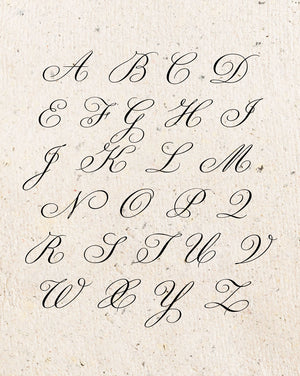 A B C D
E F G H I
J K L M
N O P Q
R S T U V
W X Y Z